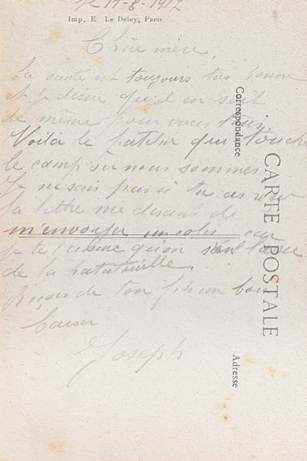 le 19-8-1912
Imp. E. Le Deley, Paris
Chère mère
La santé est toujours très bonne
et je désire qu'il en soit
de même pour vous tous
Voilà le patelin qui touche
le camp où nous sommes
Je ne sais pas si tu as reçu
la lettre me disant de
m'envoyer un colis car
je te qu'on
de la ratatouille
Reçois de ton fils un bon
baiser
Joseph
Correspondance
CARTE POSTALE
Adresse